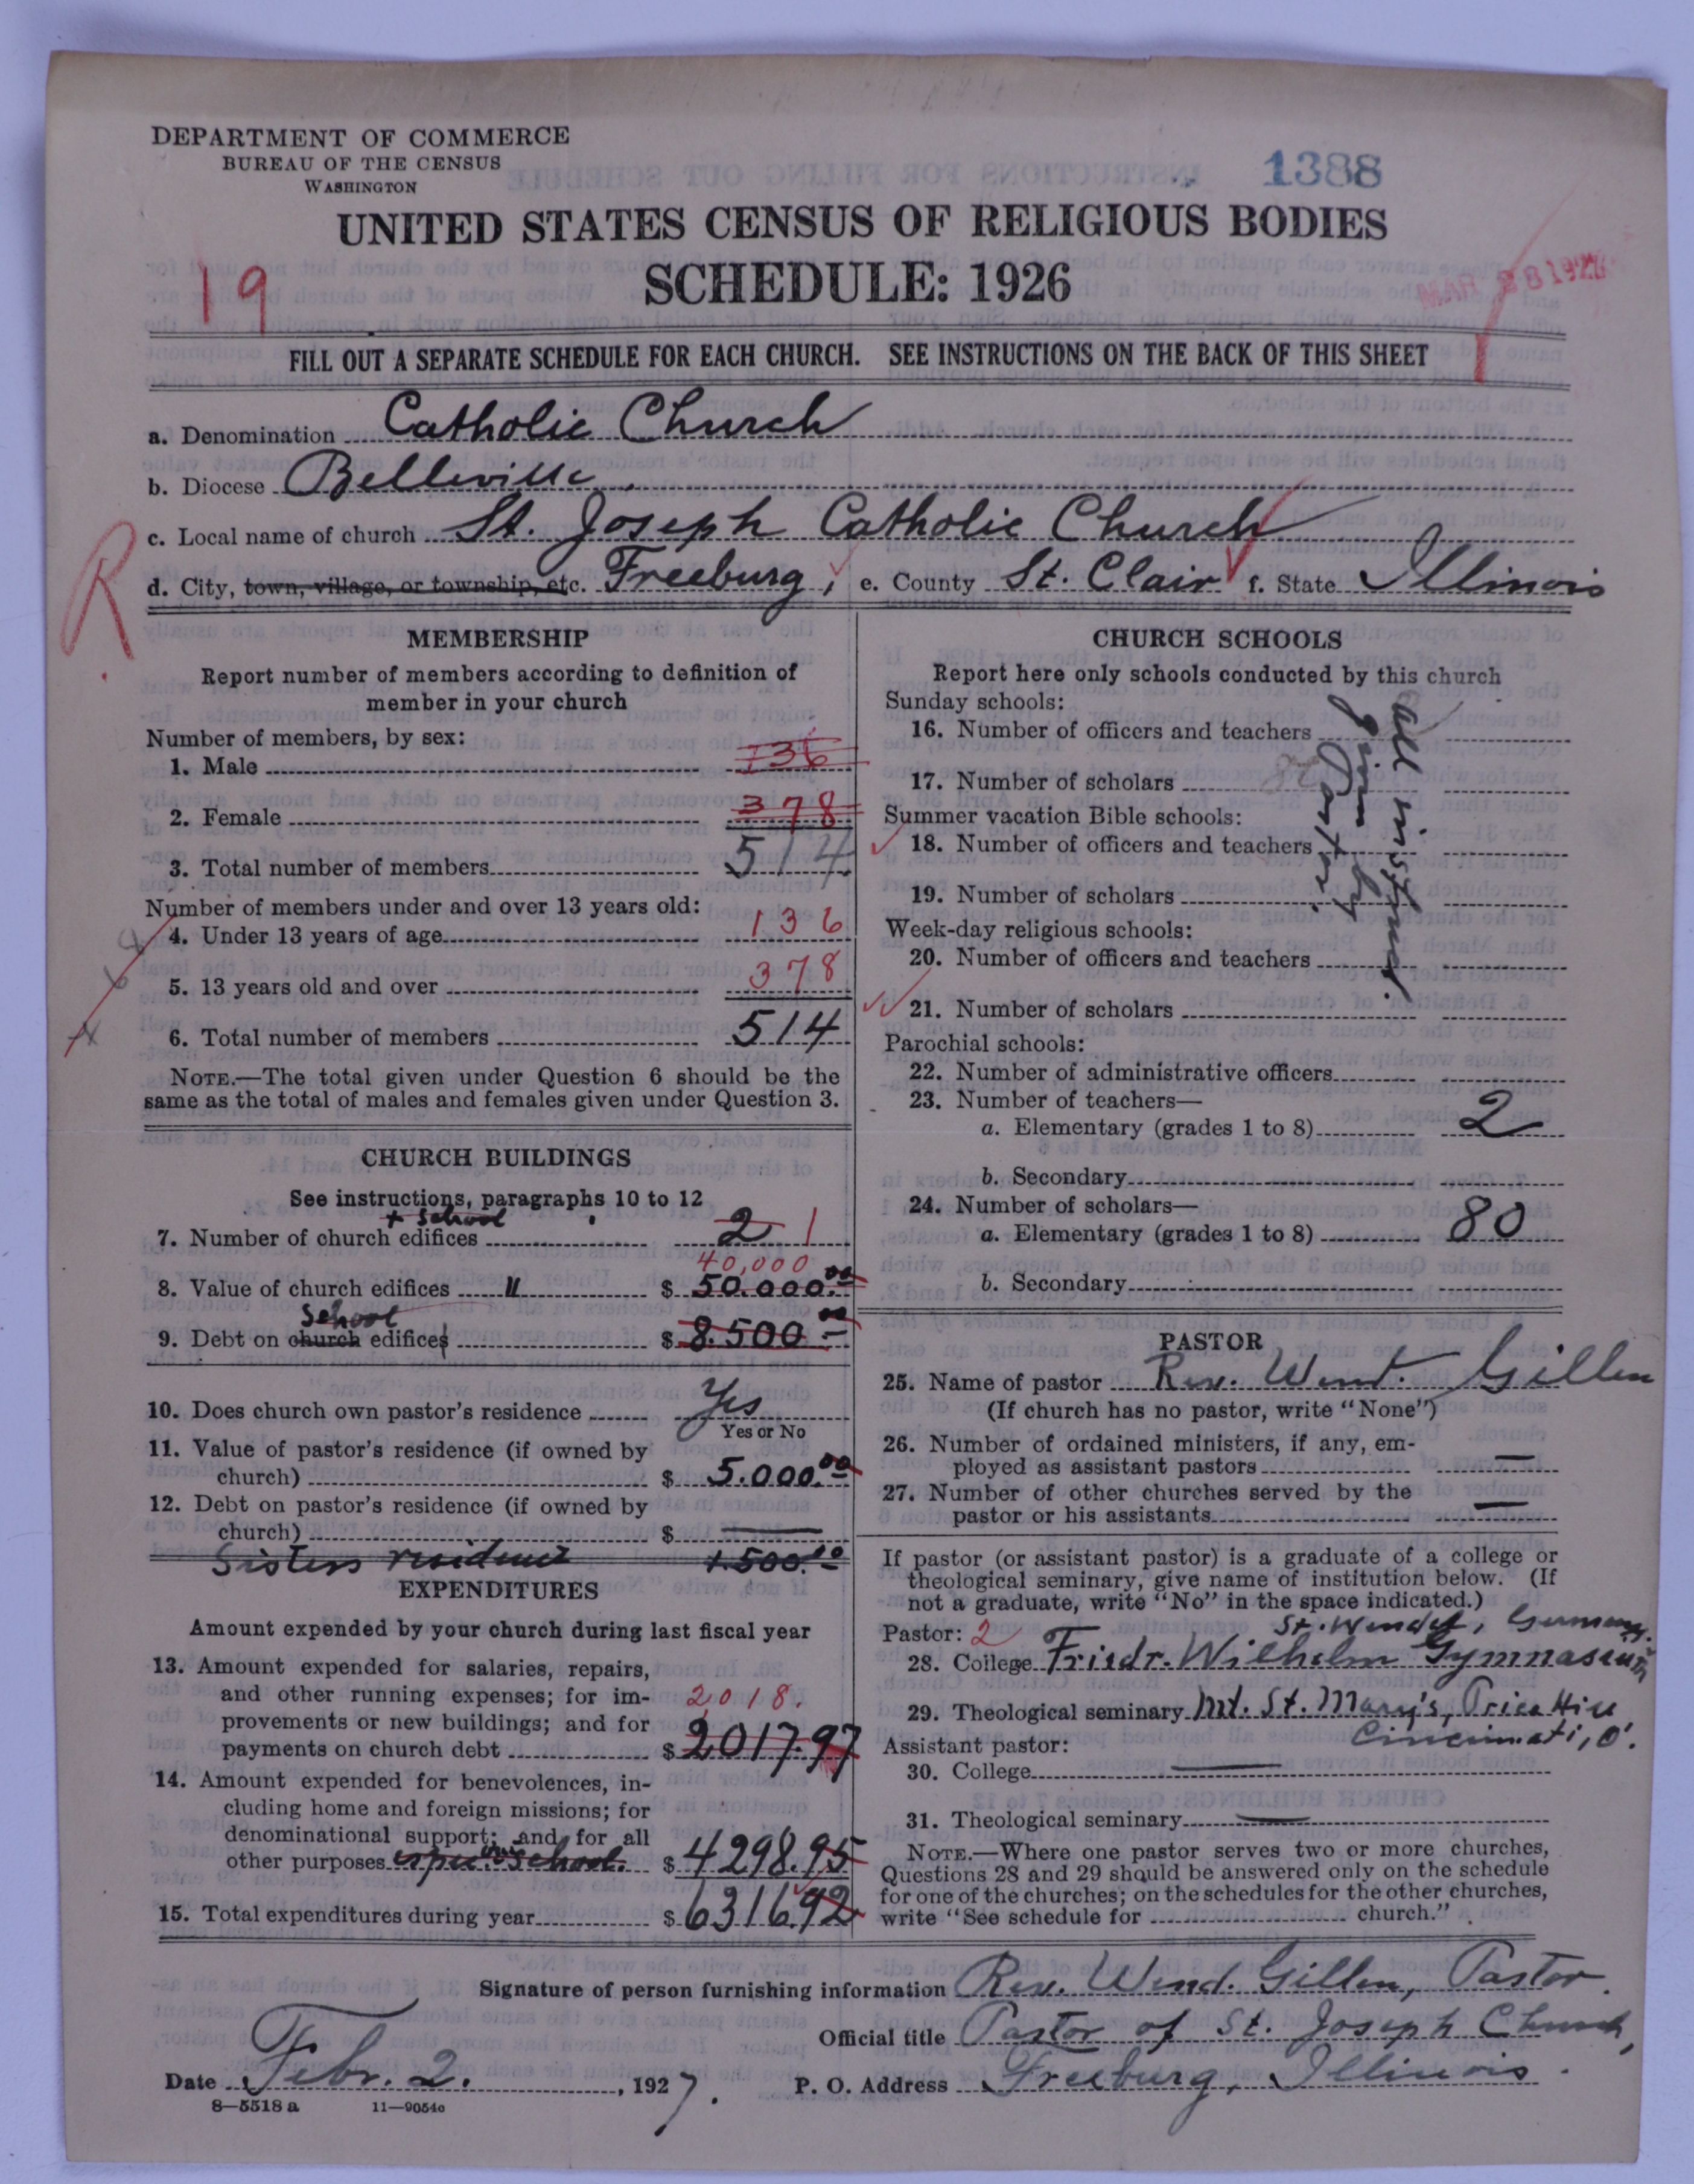 DEPARTMENT OF COMMERCE
BUREAU OF THE CENSUS
WASHINGTON
1388
UNITED STATES CENSUS OF RELIGIOUS BODIES
SCHEDULE: 1926
19
MAR 28 1927
FILL OUT A SEPARATE SCHEDULE FOR EACH CHURCH. SEE INSTRUCTIONS ON THE BACK OF THIS SHEET
a. Denomination Catholic Church
b. Diocese Belleville.
c. Local name of church St. Joseph Catholic Church
d. City, town, village, or township, etc. Freeburg, e. County St. Clair f. State Illinois
R
MEMBERSHIP
Report number of members according to definition of
member in your church
Number of members, by sex:
1. Male 136
2. Female 378
3. Total number of members 514
Number of members under and over 13 years old:
4. Under 13 years of age 136
5. 13 years old and over 378
6. Total number of members 514
NOTE.—The total given under Question 6 should be the
same as the total of males and females given under Question 3.
CHURCH BUILDINGS
See instructions, paragraphs 10 to 12
+ school
7. Number of church edifices 2 1
40,000
8. Value of church edifices " $ 50.000.00
School
9. Debt on church edifices $ 8.500.—00
10. Does church own pastor's residence Yes
Yes or No
11. Value of pastor's residence (if owned by
church) $ 5.000.00
12. Debt on pastor's residence (if owned by
church) $ —
Sisters residence +500.00
EXPENDITURES
Amount expended by your church during last fiscal year
13. Amount expended for salaries, repairs,
and other running expenses; for im-
provements or new buildings; and for
payments on church debt $ 2017.97
2,018.
14. Amount expended for benevolences, in-
cluding home and foreign missions; for
denominational support; and for all
other purposes School. $ 4298.95
15. Total expenditures during year $ 6316.92
CHURCH SCHOOLS
Report here only schools conducted by this church
Sunday schools:
16. Number of officers and teachers
17. Number of scholars
Summer vacation Bible schools:
18. Number of officers and teachers
19. Number of scholars
Week-day religious schools:
20. Number of officers and teachers
21. Number of scholars
All instruct.
given by
Pastor.
Parochial schools:
22. Number of administrative officers
23. Number of teachers—
a. Elementary (grades 1 to 8) 2
b. Secondary
24. Number of scholars—
a. Elementary (grades 1 to 8) 80
b. Secondary
PASTOR
25. Name of pastor Rev. Wend. Gillen
(If church has no pastor, write "None")
26. Number of ordained ministers, if any, em-
ployed as assistant pastors —
27. Number of other churches served by the
pastor or his assistants —
If pastor (or assistant pastor) is a graduate of a college or
theological seminary, give name of institution below. (If
not a graduate, write "No" in the space indicated.)
Pastor: 2 St. Wendel, Germany.
28. College Friedr. Wilhelm Gymnasium
29. Theological seminary Mt. St. Mary's, Price Hill
Cincinnati, O.
Assistant pastor:
30. College —
31. Theological seminary —
NOTE.—Where one pastor serves two or more churches,
Questions 28 and 29 should be answered only on the schedule
for one of the churches; on the schedules for the other churches,
write "See schedule for church."
Signature of person furnishing information Rev. Wend. Gillen, Pastor.
Official title Pastor of St. Joseph Church,
Date Febr. 2., 1927. P. O. Address Freeburg, Illinois.
8—5518 a 11—9054o